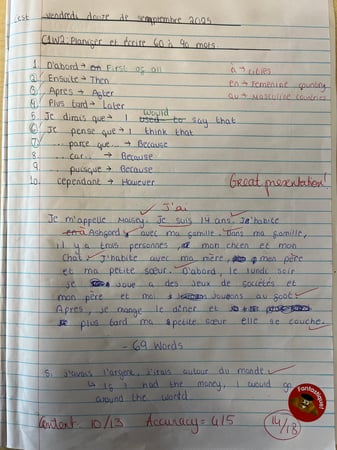 c'est vendredi douze de septembre 2025
C1W2: Planifier et écrire 60 à 90 mots.
1. D'abord → First of all
2. Ensuite → Then
3. Après → After
4. Plus tard → Later
5. Je dirais que → I would say that
6. Je pense que → I think that
7. ... parce que... → Because
8. ... car... → Because
9. ... puisque → Because
10. Cependant → However
à → cities
en → femenine country
au → masculine countries
Great presentation!
J'ai
Je m'appelle Maisey. Je suis 14 ans. J'habite
à Ashford avec ma famille. Dans ma famille,
il y a trois personnes, mon chien et mon
chat. J'habite avec ma mère, mon père
et ma petite sœur. D'abord, le lundi soir
je joue a des jeux de sociétés et
mon père et moi jouons au foot.
Apres, je mange le dîner et
plus tard ma petite sœur elle se couche.
- 69 Words
S. J'avais l'argent, j'irais autour du monde.
↳ If I had the money, I would go
around the world
Fantastique!
Content: 10/13 Accuracy = 4/5
14/18